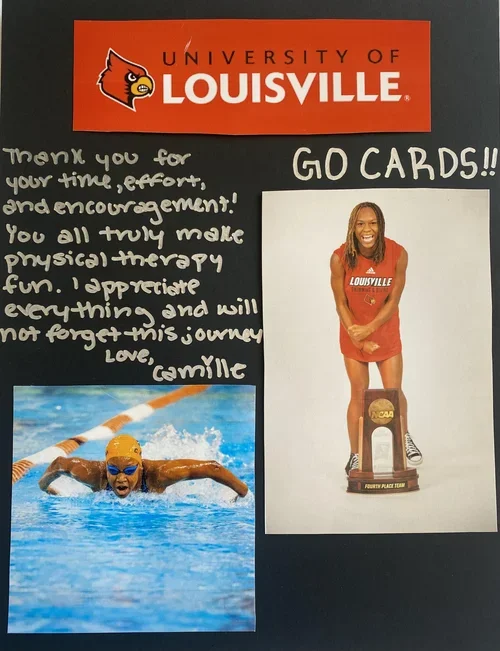 UNIVERSITY OF
LOUISVILLE
GO CARDS!!
Thank you for
your time, effort,
and encouragement!
You all truly make
physical therapy
fun. I appreciate
everything and will
not forget this journey
Love,
Camille
LOUISVILLE
NCAA
FOURTH-PLACE TEAM